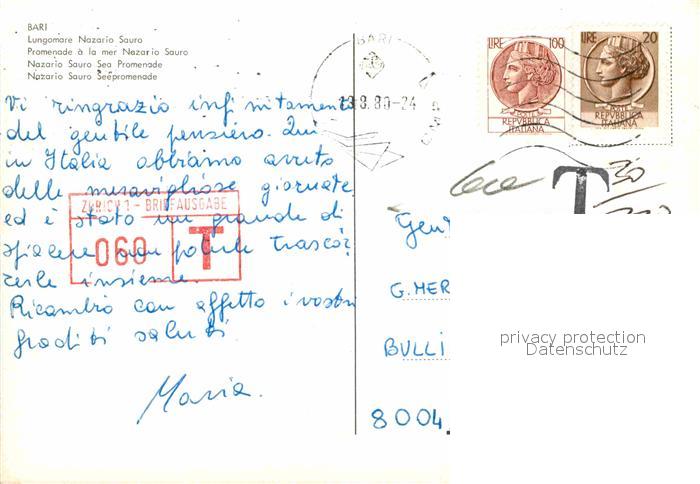 BARI
Lungomare Nazario Sauro
Promenade à la mer Nazario Sauro
Nazario Sauro Sea Promenade
Nazario Sauro Seepromenade
Vi ringrazio infinitamente
del gentile pensiero. Qui
in Italia abbiamo avuto
delle meravigliose giornate
ed è stato un grande di
spiacere non poterle trascor
rerle insieme.
Ricambio con affetto i vostri
graditi saluti
Maria.
ZÜRICH 1 - BRIEFAUSGABE
060 T
BARI
13.8.80-24
LIRE 100
POSTE
REPVBBLICA
ITALIANA
LIRE 20
POSTE
REPVBBLICA
ITALIANA
T
30
Gent
G. MER
BULLI
8004
privacy protection
Datenschutz